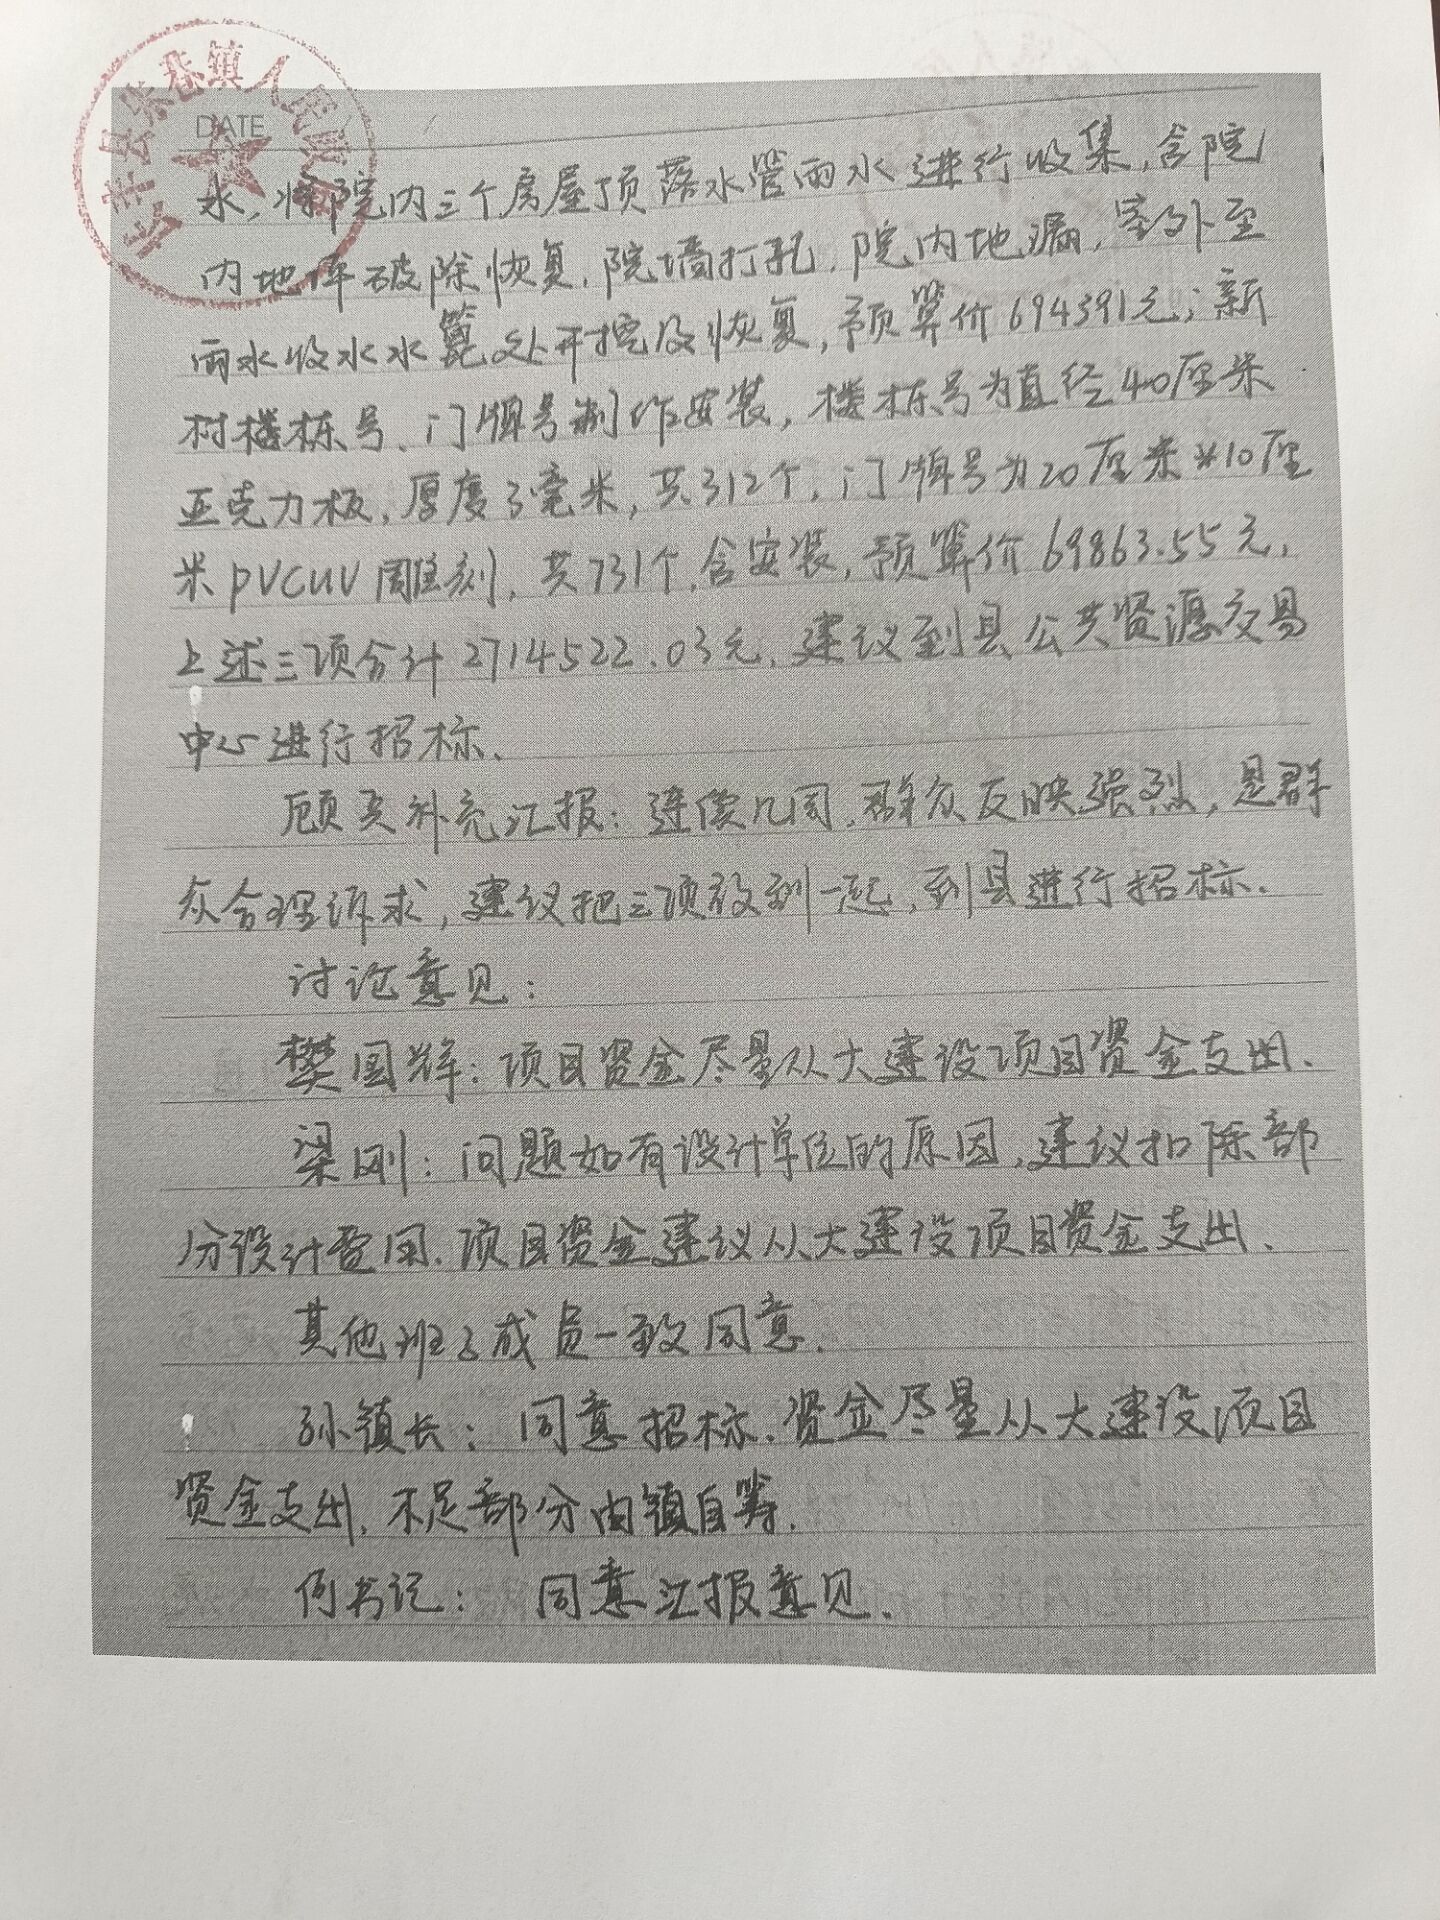 长丰县朱巷镇人民政府
DATE
水，将院内三个房屋顶落水管雨水进行收集，含院
内地坪破除恢复，院墙打孔，院内地漏，室外至
雨水收水水篦处开挖及恢复，预算价694391元；新
村楼栋号、门牌号制作安装，楼栋号为直径40厘米
亚克力板，厚度3毫米，共312个，门牌号为20厘米*10厘
米PVCUV雕刻，共731个，含安装，预算价69863.55元，
上述三项合计2714522.03元，建议到县公共资源交易
中心进行招标、
顾 补充汇报：连续几周，群众反映强烈，是群
众合理诉求，建议把三项放到一起，到县进行招标．
讨论意见：
樊国辉：项目资金尽量从大建设项目资金支出．
梁刚：问题如有设计单位的原因，建议扣除部
分设计费用．项目资金建议从大建设项目资金支出．
其他班子成员一致同意．
孙镇长：同意招标．资金尽量从大建设项目
资金支出，不足部分由镇自筹．
何书记：同意汇报意见．